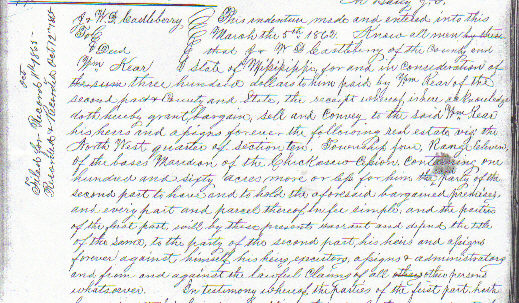 Jr W. D. Castleberry This indenture made and entered into this
To March the 5th 1862. Know all men by these
Deed that Jr W D Castleberry of the County and
Wm Kear State of Mississippi for and in consideration of
the sum three hundred dollars to him paid by Wm Kear of the
second part County and State, the receipt whereof is here acknowledged
doth hereby grant, bargain, sell and convey to the said Wm Kear
his heirs and assigns forever the following real estate viz the
North West quarter of section ten, Township four, Range Eleven,
of the bases Meredon of the Chickasaw Cession. Containing one
hundred and sixty acres more or less for him the party of the
second part to have and to hold the aforesaid bargained premises
and every part and parcel thereof in fee simple, and the parties
of the first part, will by these presents warrant and defend the title
of the same, to the party of the second part, his heirs and assigns
forever against himself, his heirs, executors, assigns & administrators
and from and against the lawful Claims of all others other persons
whatsoever. In testimony whereof the parties of the first part hath
Filed for Record 1865
Recorded Oct 12th 1865